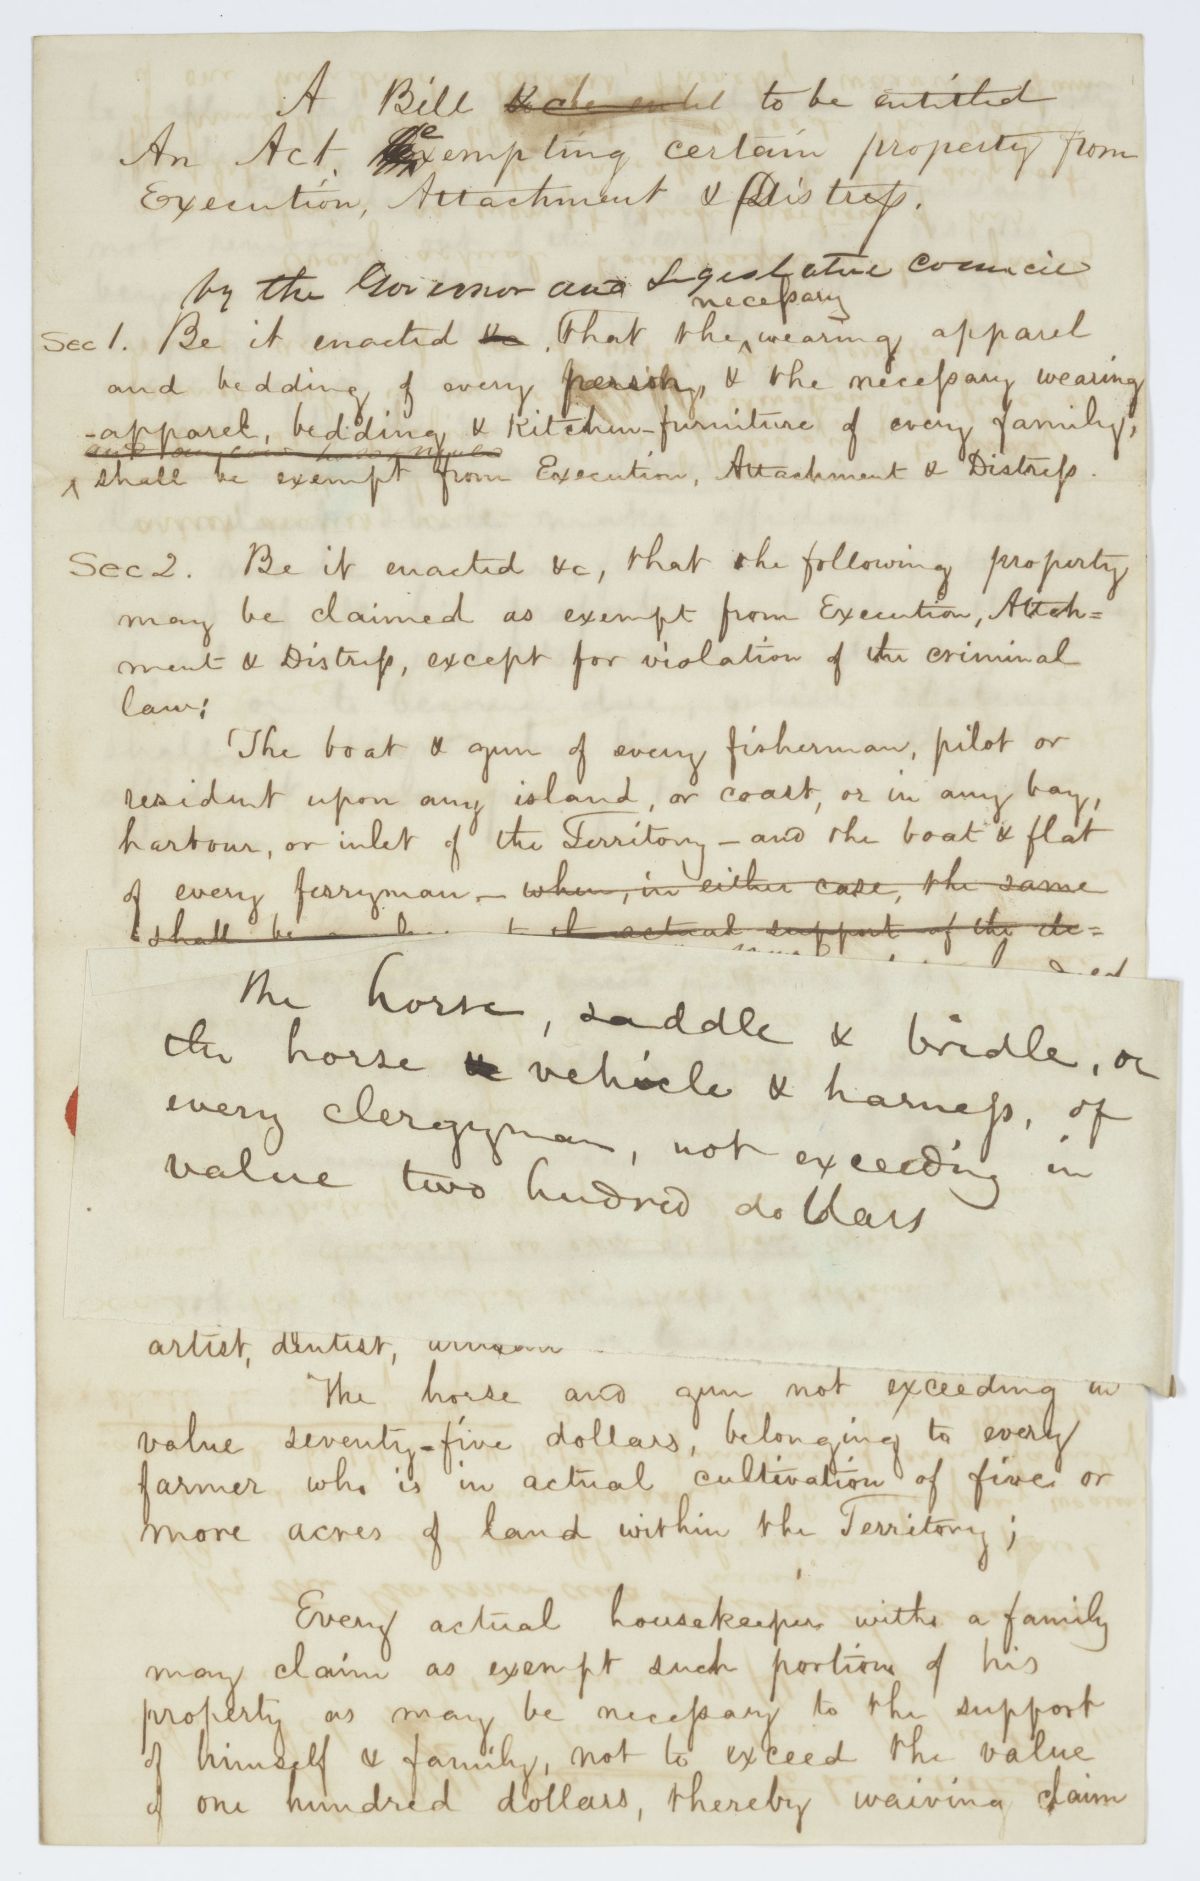 A Bill to be entitled
An Act, exempting certain property from
Execution, Attachment & Distress.
by the Governor and Legeslative Council
necessary
Sec 1. Be it enacted &c, That the wearing apparel
and bedding of every person, & the necessary wearing
-apparel, bedding & Kitchen-furniture of every family,
shall be exempt from Execution, Attachment & Distress.
Sec 2. Be it enacted &c, that the following property
may be claimed as exempt from Execution, Attch=
ment & Distress, except for violation of the criminal
law;
The boat & gun of every fisherman, pilot or
resident upon any island, or coast, or in any bay,
harbour, or inlet of the Territory - and the boat & flat
of every ferryman - when, in either case, the same
shall be actual support of the de=
the horse, saddle & bridle, or
the horse vehicle & harness, of
every clergyman, not exceeding in
value two hudred dollars
artist, dentist,
The horse and gun not exceeding in
value seventy-five dollars, belonging to every
farmer who is in actual cultivation of five or
more acres of land within the Territory;
Every actual housekeeper with a family
may claim as exempt such portion of his
property as may be necessary to the support
of himself & family, not to exceed the value
of one hundred dollars, thereby waiving claim